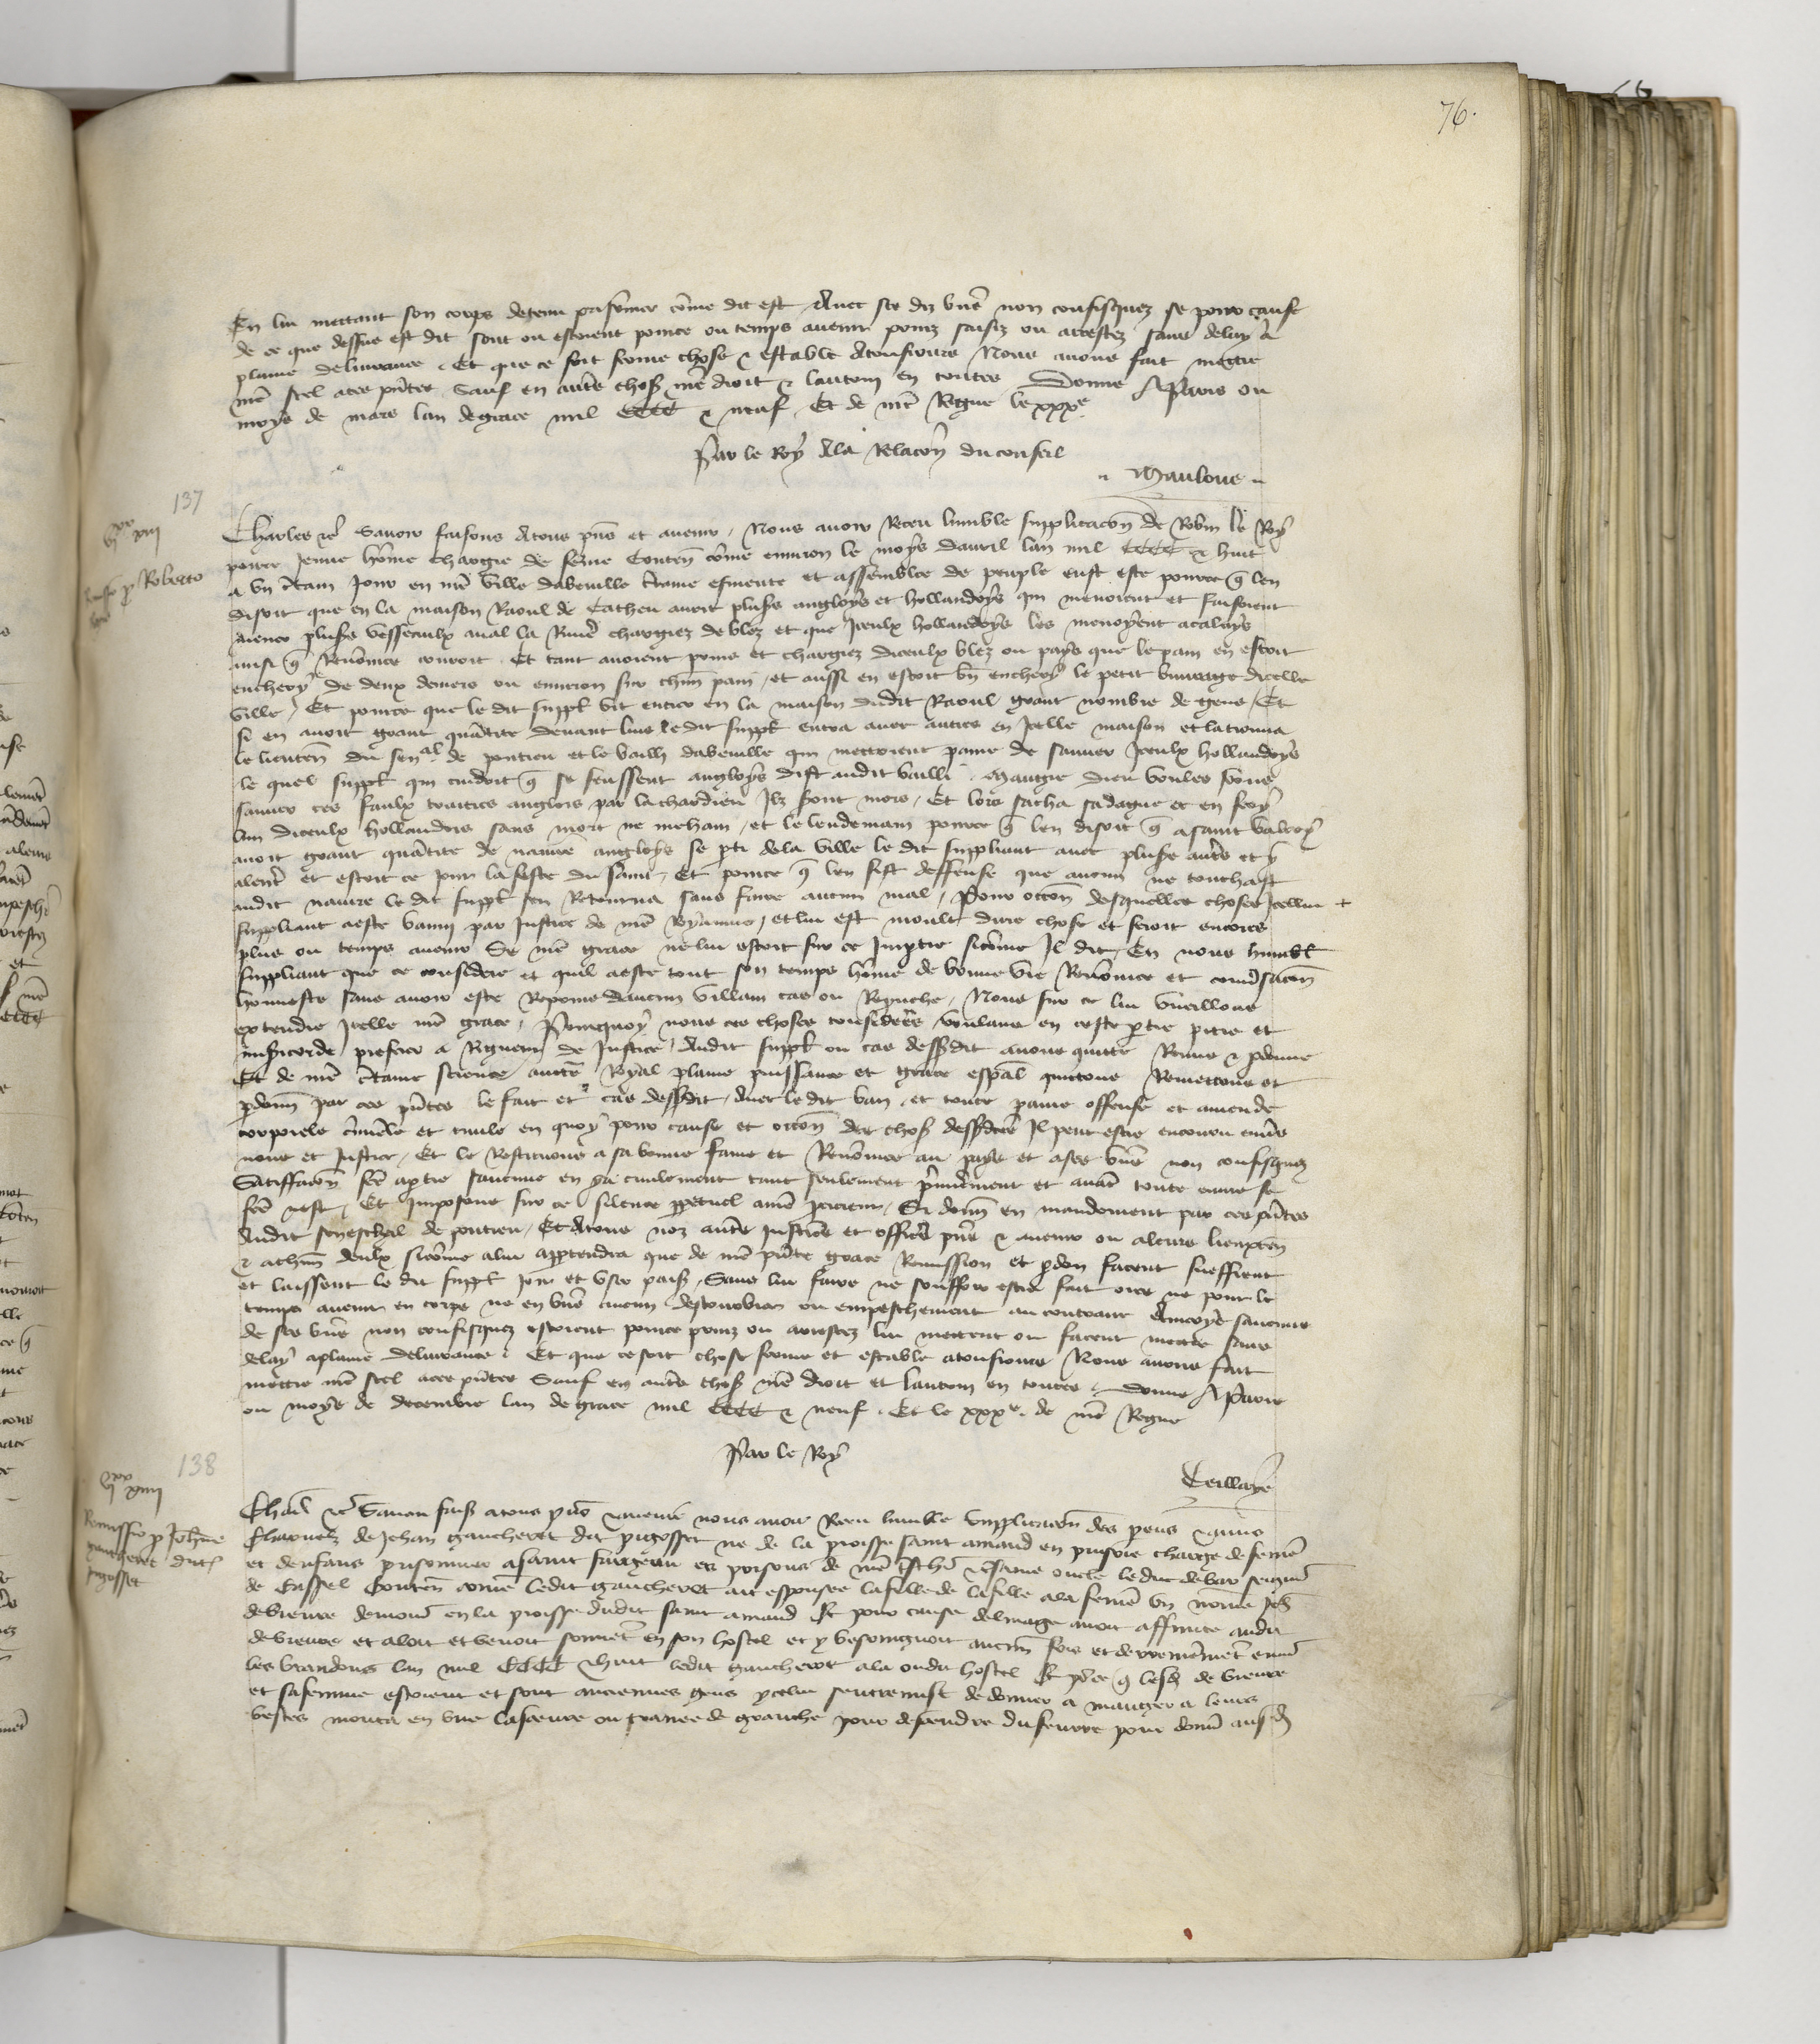 76.
En lui mettant son corps detenu prisonnier cõme dit est Avec ses diz biẽs non confisquez se pour cause
de ce que dessus est dit sont ou estoient pource ou temps avenir prins saisiz ou arrestez sans delay a
plaine delivrance. Et que ce soit ferme chose & estable a tousiours Nous avons fait mettre
nrẽ scel a ces pñtes Sauf en autres choses nrẽ droit & lautruy en toutes Donne A Paris ou
moys de mars lan de grace mil CCCC & neuf Et de nrẽ Regne le xxxe
Par le Roy A la Relacõn du conseil
Mauloue
137
Charles etc Savoir faisons A tous pñs et avenir, Nous avoir Receu lumble supplicacõn de Robin le Roy
povre jeune hõme chargie de fẽme Conten cõme environ le moys davril lan mil CCCC & huit
a un certain jour en nrẽ ville dabeville certaine esmeute et assemblee de peuple eust este pource q̃ len
disoit que en la maison Raoul de Catheu avoit plusrs angloys et hollandoys qui menoient et faisoient
mener plusrs vesseaulx aval la Rivier chargiez de blez et que Iceulx hollandoys les menoyent a calays
ainsi q̃ Renõmee couroit Et tant avoient prins et chargiez diceulx blez ou pays que le pain en estoit
enchery de deux deniers ou environ sur chũn pain, et aussi en estoit bñ enchery le petit buvrage dicelle
ville, Et pource que le dit supplt vit entrer en la maison dudit Raoul grant nombre de gens, Et
si en avoit grant quãtite devant luis le dit supplt entra avec autres en Icelle maison et la trouva
le lieutẽn du senal de pontieu et le bailli dabeville qui mettoient paine de sauver Iceulx hollandoys
le quel supplt qui cuidoit q̃ se feussent angloys dist audit bailli Maugre dieu voules vous
sauver ces faulx traitres anglois par la char dieu Ilz sont mors, Et lors sacha sa dague et en fery
lun diceulx hollandois sans mort ne mehain, et le lendemain pource q̃ len disoit q̃ a saint Valery
avoit grant quãtite de navire angloys se pti de la ville le dit suppliant avec plusrs autrs et y
alerẽt et estoit ce jour la feste du saint, Et pource q̃ len fist deffense que aucun ne touchast
audit navire le dit supplt sen Retourna sans faire aucun mal, Pour occõn desquelles choses Icellui +
suppliant a este banny par Justice de nrẽ Royaume, et lui est moult dure chose et seroit encores
plus ou temps avenir Se nrẽ grace ne lui estoit sur ce Impartie sicõme Il dit, En nous humblt
suppliant que ce considere et quil a este tout son temps hõme de bonne vie Renõmee et conversacõn
honneste sans avoir este Reprins daucun villain cas ou Reprouche, Nous sur ce lui vueillons
extendre Icelle nrẽ grace, Pourquoy nous ces choses considerees voulans en ceste ptie pitie et
misericorde preferer a Rigueur de Justice Audit supplt ou cas dessusdit avons quitte Remis & pdonne
Et de nrẽ certaine science auctẽ Royal plaine puissance et grace espãl quictons Remettons et
pdonñs par ces pñtes le fait et cas dessusdit, Avec le dit ban, et toute paine offense et amende
corporele crimĩele et civile en quoy pour cause et occõn des choses dessusdictes Il peut estre encouru envers
nous et Justice, Et le Restituons a sa bonne fame et Renõmee au pays et a ses biẽs non confisquez
Satiffacõn fcẽ a ptie saucune en ya civilement tant seulement premierement et avãt toute euvre se
fcẽ nest, Et Imposons sur ce silence ppetuel a nrẽ procureur, Si donñs en mandement par ces pñtes
Audit seneschal de pontieu, Et A tous noz autrs Justiciers et officiers pñs & avenir ou a leurs lieuxtẽn
& a chũn deulx sicõme a lui appartendra que de nrẽ pñte grace Remission et pdon facent sueffrent
et laissent le dit supplt joir et user paisiblt, Sans lui faire ne souffrir estre fait ores ne pour le
temps avenir en corps ne en biẽs aucun destourbier ou empeschement au contraire Aincoys saucuns
de ses biẽs non confisquez estoient pource prins ou arrestez lui mettent ou facent mettre sans
delay a plaine delivrance, Et que ce soit chose ferme et estable a tousiours Nous avons fait
mettre nrẽ scel a ces pñtes Sauf en autres choses nrẽ droit et lautruy en toutes, Donne A Paris
ou moys de decembre lan de grace mil CCCC & neuf, Et le xxxe de nrẽ Regne
Par le Roy
138
Remissio p Johãne
gaucheret dict
pigosset
Charl etc Savoir faiss a tous pñs & avenir nous avoir Receu lumble supplicacion des pens & amis
charnelz de Jehan gaucheret dit pigosset ne de la proisse saint amand en puisoie charge de femẽ
et denfans prisonnier a saint fargeau es prisons de nrẽ & oncle le duc de bar seignr
de Cassel Conten comẽ ledit gaucheret ait espousee la fille de la fille a la femẽ un nõme Jeh
de vieuve demourt en la proisse dudit saint amand Et pour cause dudit mariage avoit affinite audit
de vieuve et aloit et venoit souvent en son hostel et y besoingnoit aucun fois et derrenierement environ
les brandons lan mil CCCC & huit ledit gaucheret ala oudit hostel Et pource q̃ lesd de vieuve
et sa femme estoient et sont anciennes gens ycellui sentremist de donner a mangier a leurs
bestes monta en une ou de granche pour descendre du feurre pour donner ausd